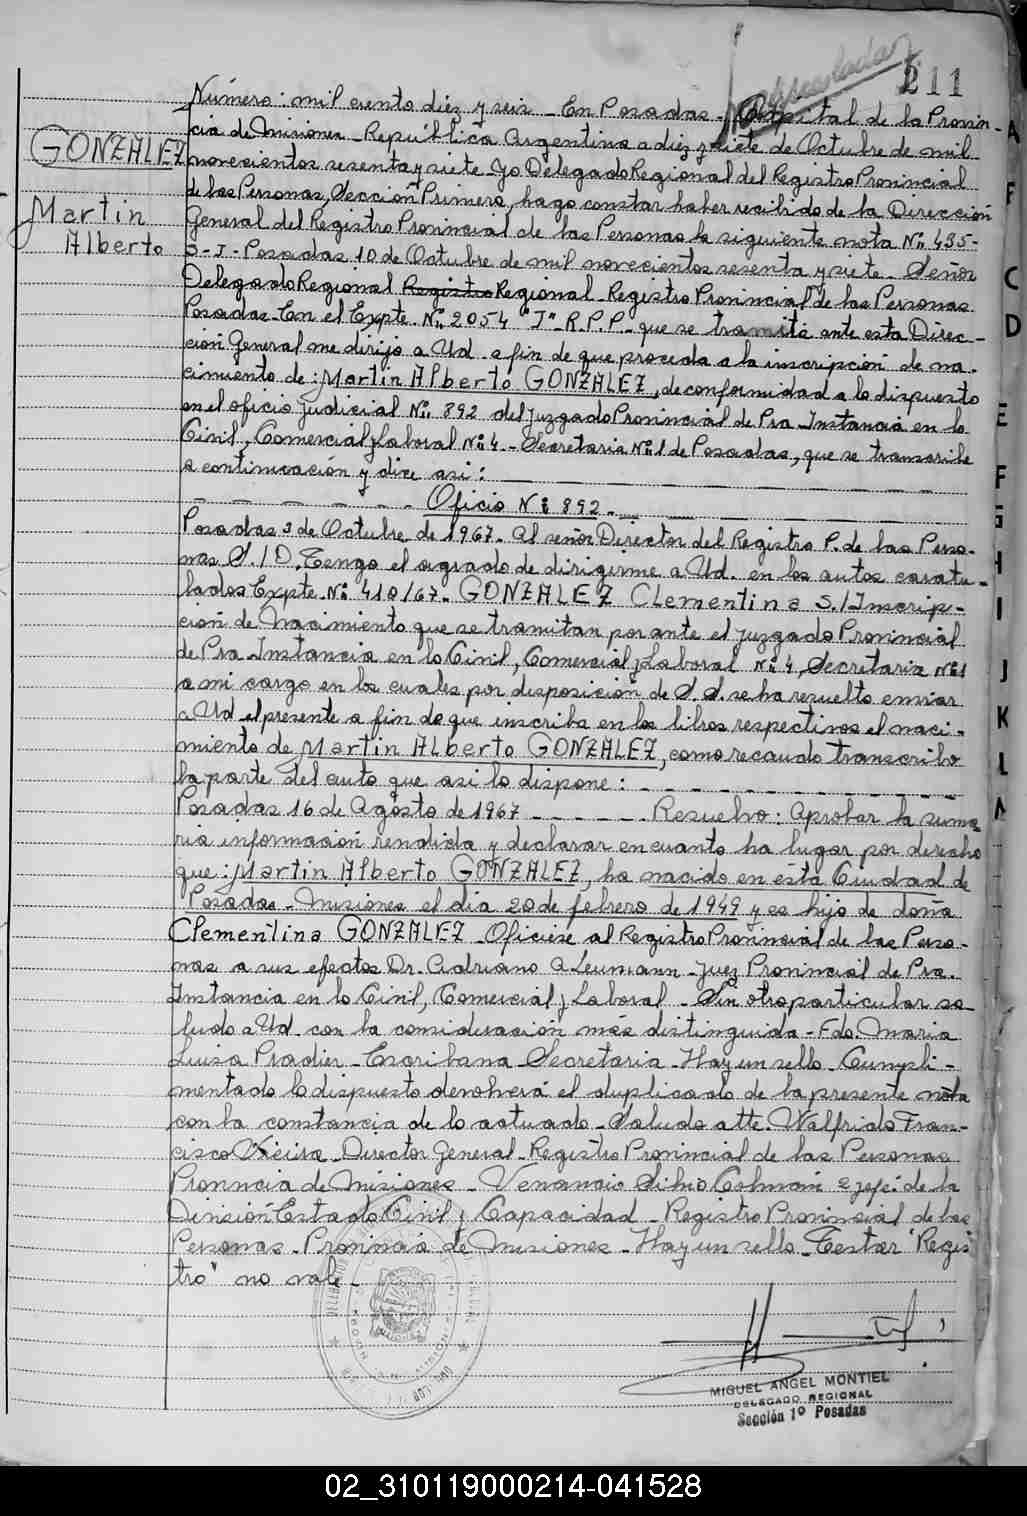 211
GONZALEZ
Martin
Alberto
Número: mil ciento diez y seis - En Posadas - Capital de la Provin-
cia de Misiones - República Argentina a diez y siete de Octubre de mil
novecientos sesenta y siete - Yo Delegado Regional del Registro Provincial
de las Personas, Sección Primera, hago constar haber recibido de la Dirección
General del Registro Provincial de las Personas la siguiente nota Nº 435-
S-I- Posadas 10 de Octubre de mil novecientos sesenta y siete - Señor
Delegado Regional Registro Regional - Registro Provincial de las Personas
Posadas - En el Expte. Nº 2054 "J" R.P.P. que se tramita ante esta Direc-
ción General me dirijo a Ud. a fin de que proceda a la inscripción de na-
cimiento de: Martin Alberto GONZALEZ, de conformidad a lo dispuesto
en el oficio Judicial Nº 892 del Juzgado Provincial de Pra Instancia en lo
Civil, Comercial y Laboral Nº 4 - Secretaria Nº 1 de Posadas, que se transcribe
a continuación y dice asi:
Oficio Nº 892.-
Posadas 3 de Octubre de 1967. Al señor Director del Registro P. de las Perso-
nas S./D. Tengo el agrado de dirigirme a Ud. en los autos caratu-
lados Expte. Nº 410/67- GONZALEZ Clementina S./Inscrip-
ción de Nacimiento que se tramitan por ante el Juzgado Provincial
de Pra Instancia en lo Civil, Comercial y Laboral Nº 4, Secretaria Nº 1
a mi cargo en los cuales por disposición de S.S. se ha resuelto enviar
a Ud el presente a fin de que inscriba en los libros respectivos el naci-
miento de Martin Alberto GONZALEZ, como recaudo transcribo
la parte del auto que asi lo dispone:
Posadas 16 de Agosto de 1967 - - - - - - Resuelvo: Aprobar la suma
ria información rendida y declarar en cuanto ha lugar por derecho
que: Martin Alberto GONZALEZ, ha nacido en ésta Ciudad de
Posadas - Misiones el dia 20 de febrero de 1949 y es hijo de doña
Clementina GONZALEZ - Oficiese al Registro Provincial de las Perso-
nas a sus efectos Dr. Adriano A Leumann - Juez Provincial de Pra.
Instancia en lo Civil, Comercial y Laboral - Sin otro particular sa
ludo a Ud. con la consideración más distinguida - Fdo. Maria
Luisa Pradier - Escribana Secretaria - Hay un sello - Cumpli-
mentado lo dispuesto devolverá el duplicado de la presente nota
con la constancia de lo actuado - Saludo atte. Walfrido Fran-
cisco Director General - Registro Provincial de las Personas
Provincia de Misiones - Venancio Silvio Colman 2º jefe de la
División Estado Civil y Capacidad - Registro Provincial de las
Personas - Provincia de Misiones - Hay un sello - Testar "Regis
tro" no vale -
MIGUEL ANGEL MONTIEL
DELEGADO REGIONAL
Sección 1º Posadas
A
F
C
D
E
F
G
H
I
J
K
L
02_310119000214-041528